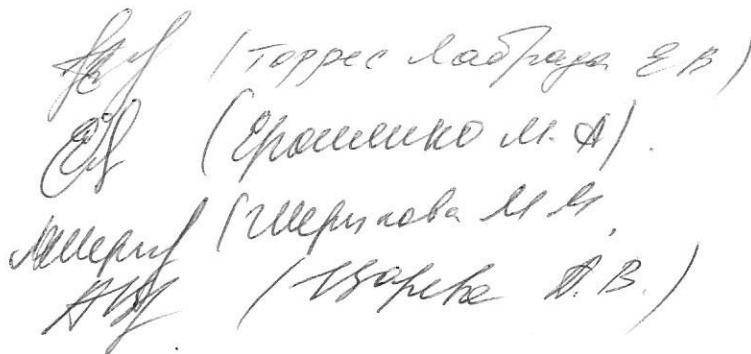 (Торрес Лабрада Е В)
(Ерошенко М. А).
(Шерикова М М.
(Царева А. В.)